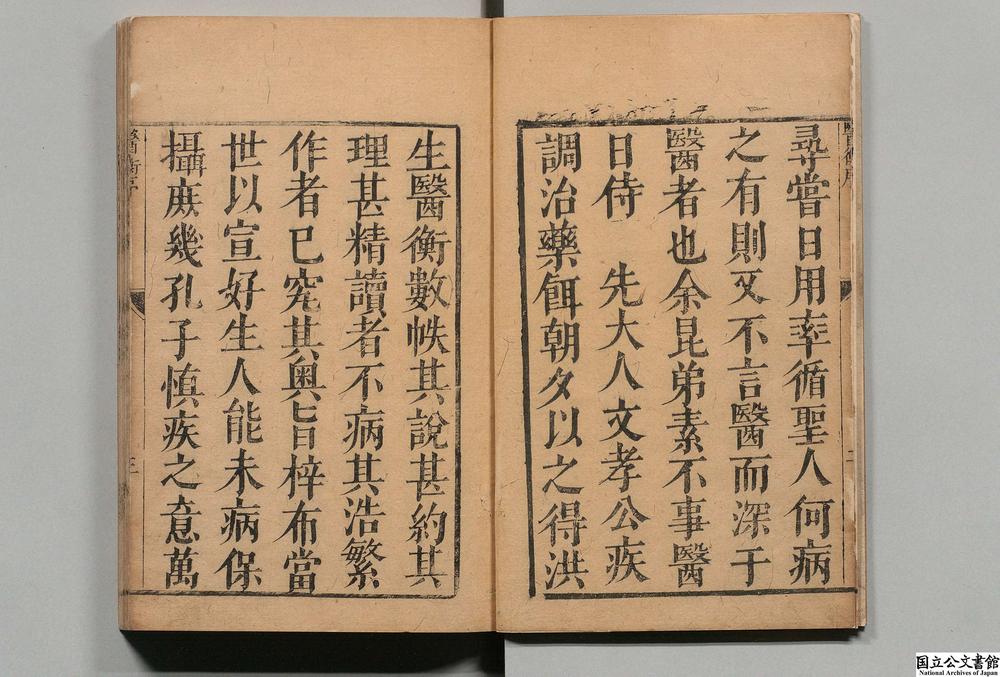 醫衡序
尋嘗日用率循聖人何病
之有則又不言醫而深于
醫者也余昆弟素不事醫
日侍　先大人文孝公疾
調治藥餌朝夕以之得洪
二
生醫衡數帙其說甚約其
理甚精讀者不病其浩繁
作者已究其奥旨梓布當
世以宣好生人能未病保
攝庻幾孔子慎疾之意萬
醫衡序
三
国立公文書館
National Archives of Japan